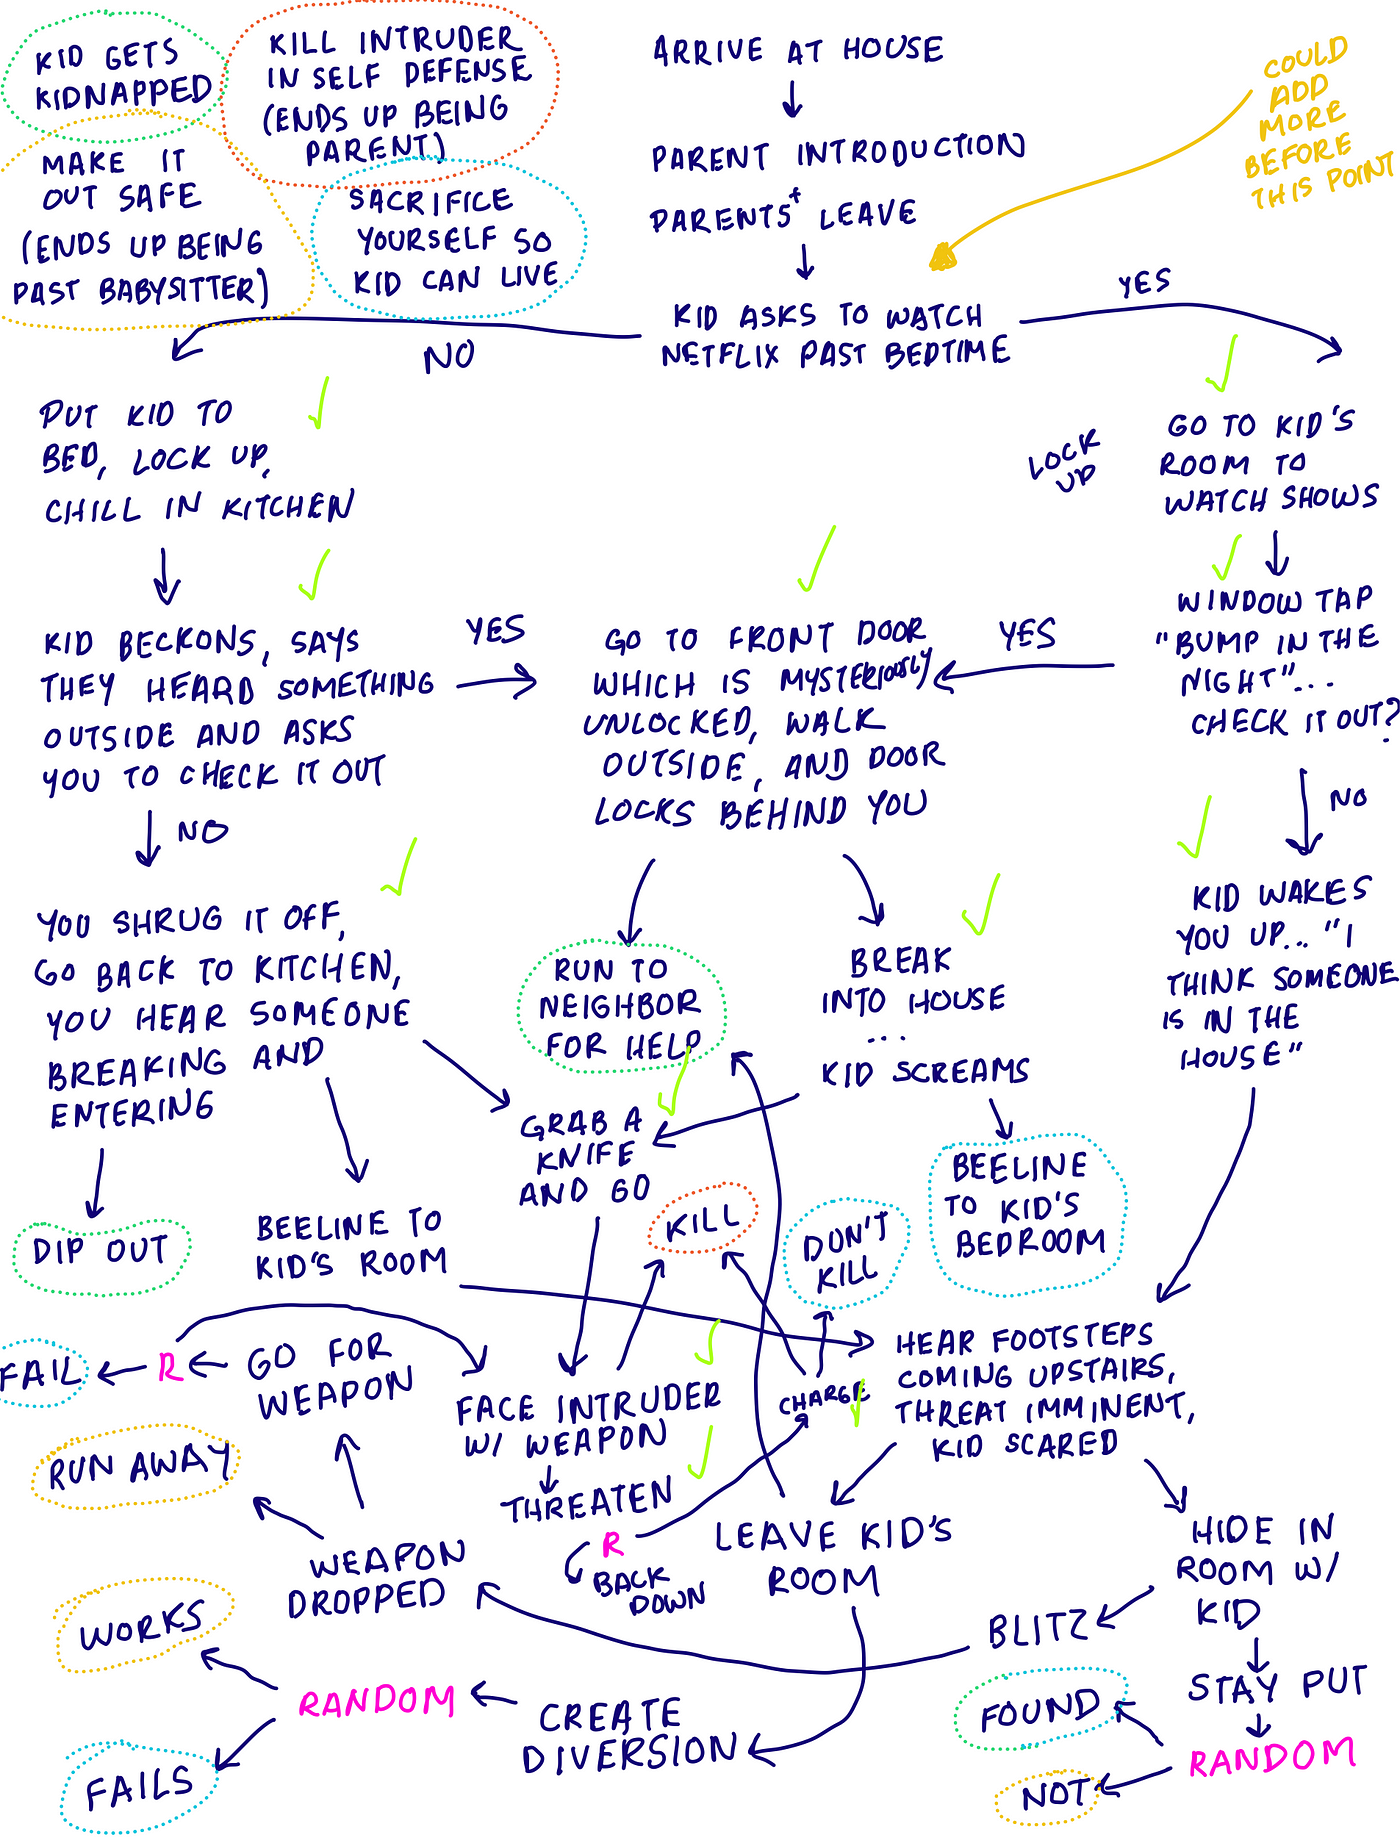 KID GETS
KIDNAPPED
KILL INTRUDER
IN SELF DEFENSE
(ENDS UP BEING
PARENT)
MAKE IT
OUT SAFE
(ENDS UP BEING
PAST BABYSITTER)
SACRIFICE
YOURSELF SO
KID CAN LIVE
ARRIVE AT HOUSE
PARENT INTRODUCTION
+
PARENTS LEAVE
COULD
ADD
MORE
BEFORE
THIS POINT
KID ASKS TO WATCH
NETFLIX PAST BEDTIME
YES
NO
PUT KID TO
BED, LOCK UP,
CHILL IN KITCHEN
LOCK
UP
GO TO KID'S
ROOM TO
WATCH SHOWS
KID BECKONS, SAYS
THEY HEARD SOMETHING
OUTSIDE AND ASKS
YOU TO CHECK IT OUT
YES
GO TO FRONT DOOR
WHICH IS MYSTERIOUSLY
UNLOCKED, WALK
OUTSIDE, AND DOOR
LOCKS BEHIND YOU
YES
WINDOW TAP
"BUMP IN THE
NIGHT"...
CHECK IT OUT?
NO
NO
YOU SHRUG IT OFF,
GO BACK TO KITCHEN,
YOU HEAR SOMEONE
BREAKING AND
ENTERING
RUN TO
NEIGHBOR
FOR HELP
BREAK
INTO HOUSE
...
KID SCREAMS
KID WAKES
YOU UP... "I
THINK SOMEONE
IS IN THE
HOUSE"
GRAB A
KNIFE
AND GO
DIP OUT
BEELINE TO
KID'S ROOM
KILL
DON'T
KILL
BEELINE
TO KID'S
BEDROOM
FAIL
R
GO FOR
WEAPON
FACE INTRUDER
W/ WEAPON
CHARGE
HEAR FOOTSTEPS
COMING UPSTAIRS,
THREAT IMMINENT,
KID SCARED
RUN AWAY
THREATEN
R
BACK
DOWN
WEAPON
DROPPED
LEAVE KID'S
ROOM
HIDE IN
ROOM W/
KID
BLITZ
WORKS
RANDOM
CREATE
DIVERSION
STAY PUT
FOUND
RANDOM
FAILS
NOT